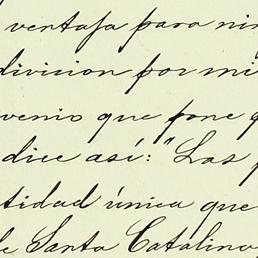 ventaja para nin
division por mi
venio que pone
dice así: "Las
tidad única que
de Santa Catalina,